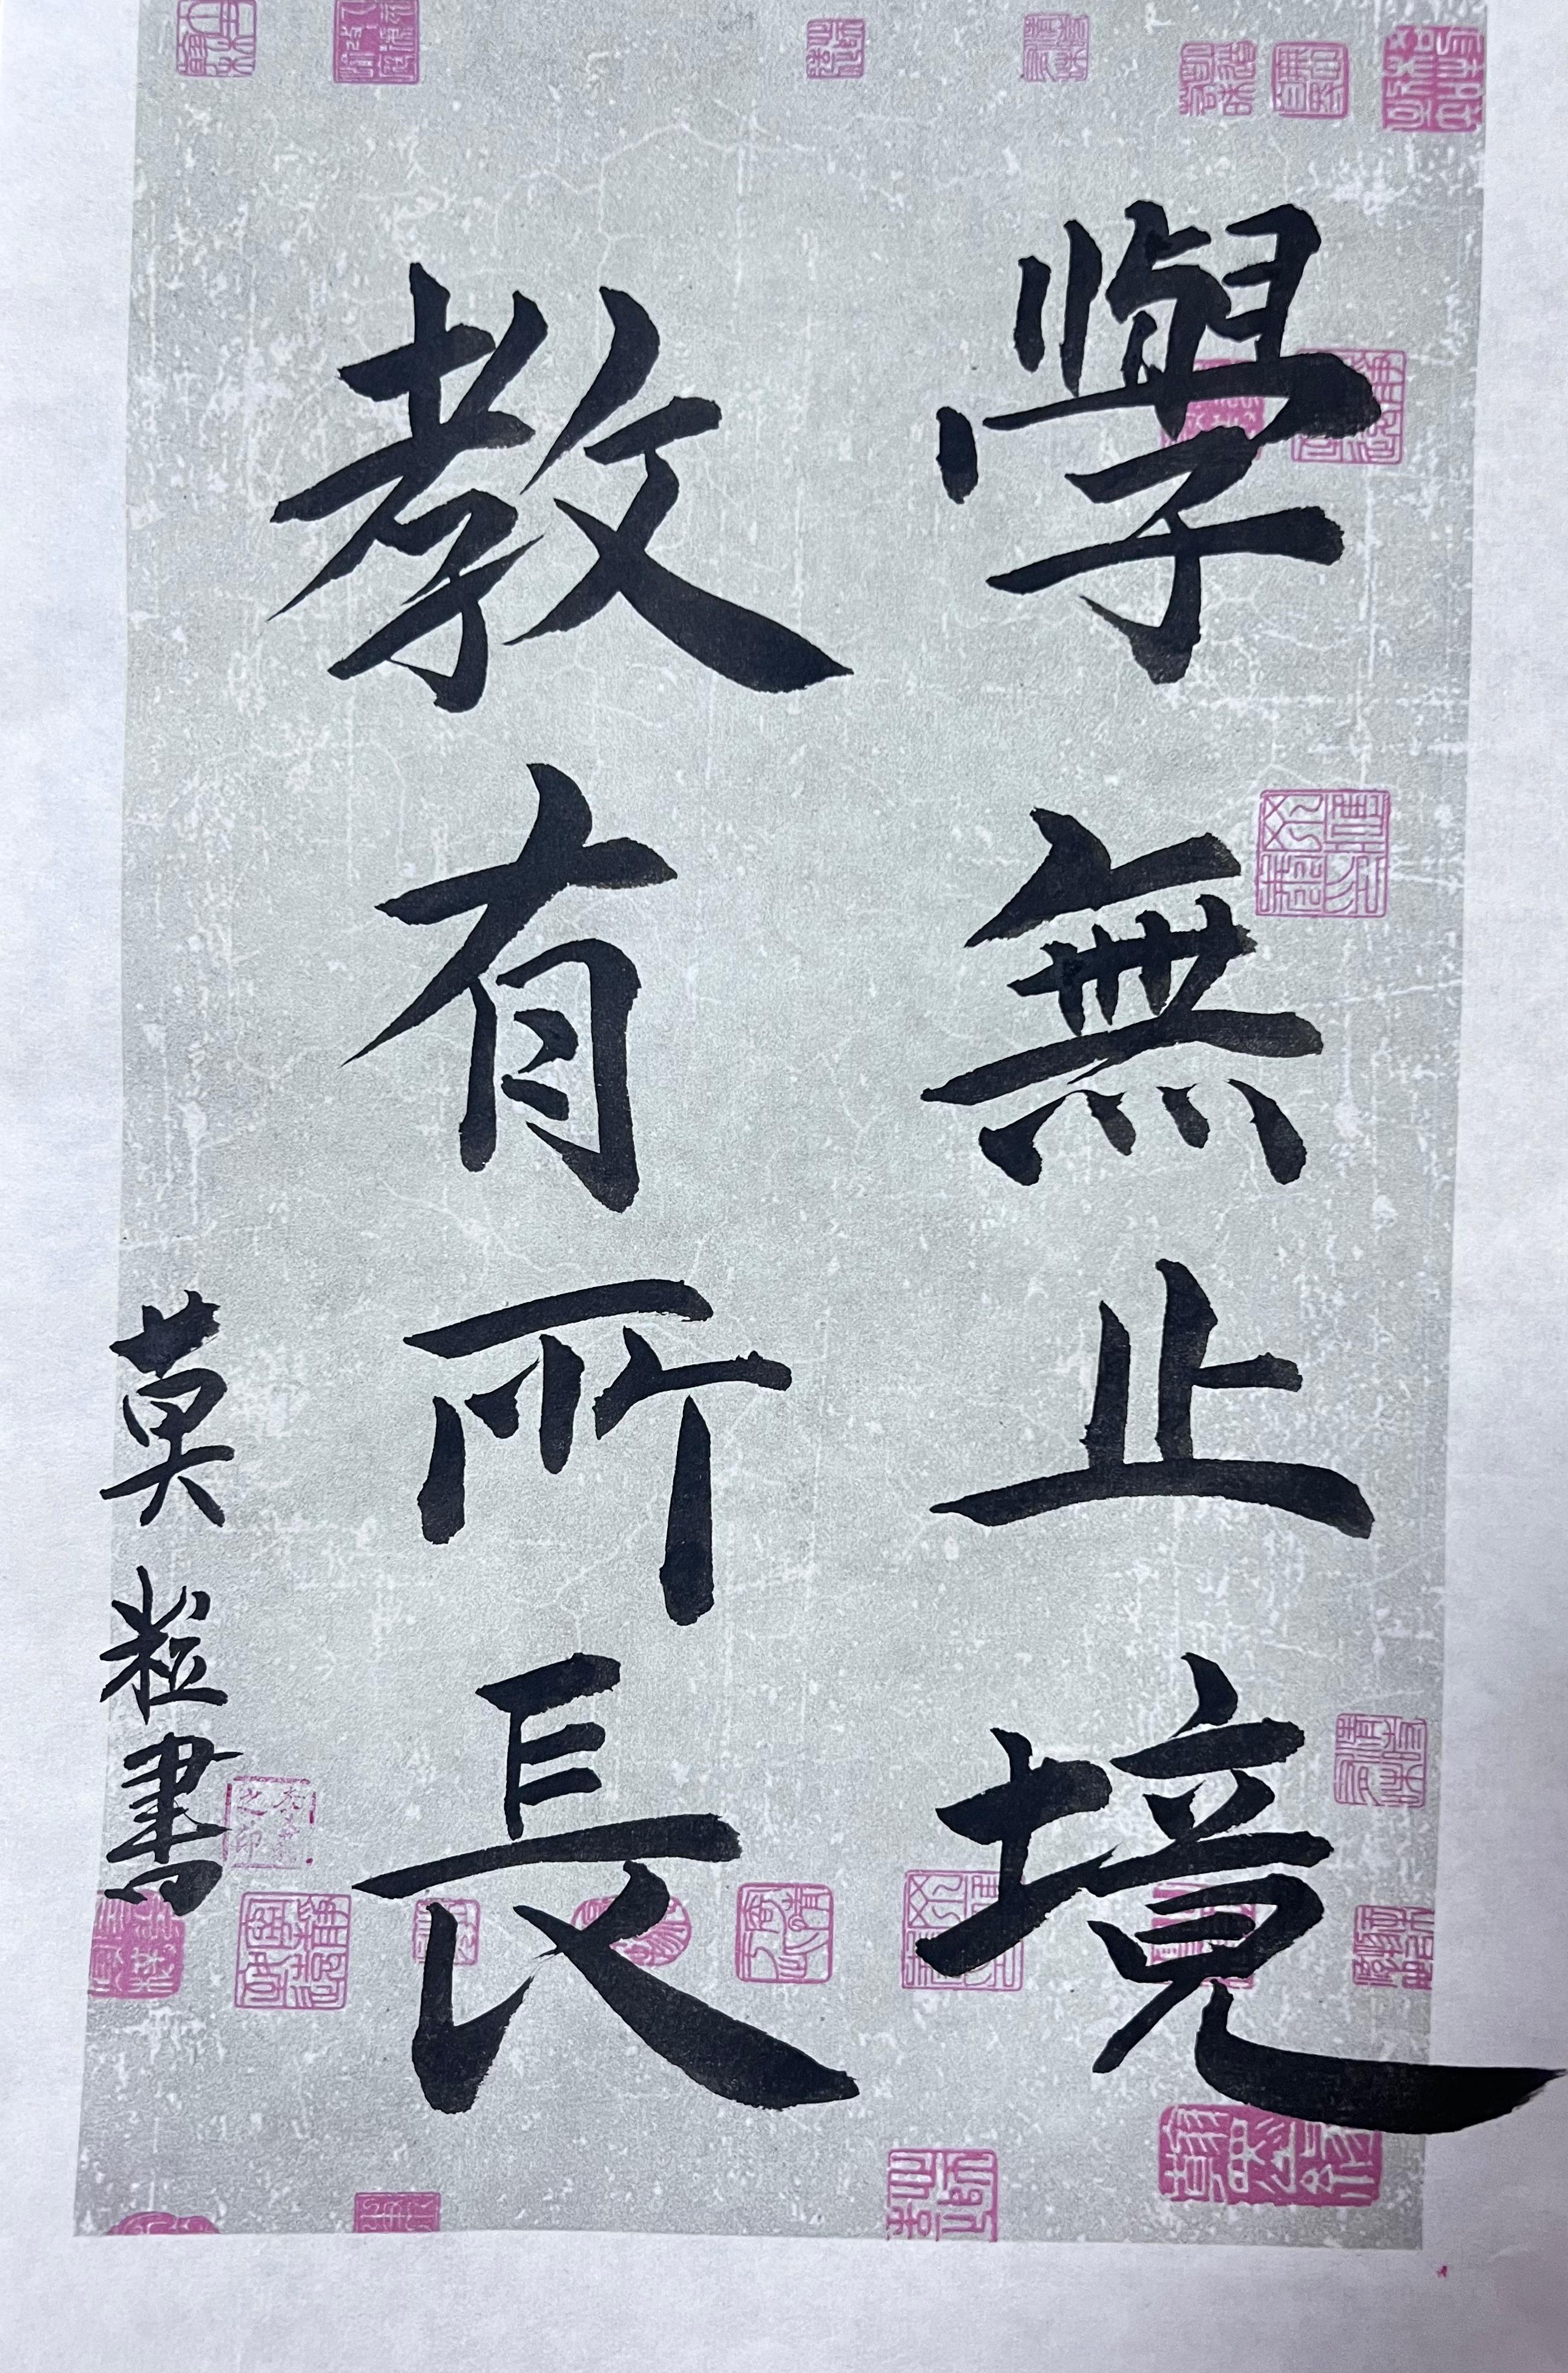 學無止境
教有所長
莫粒書